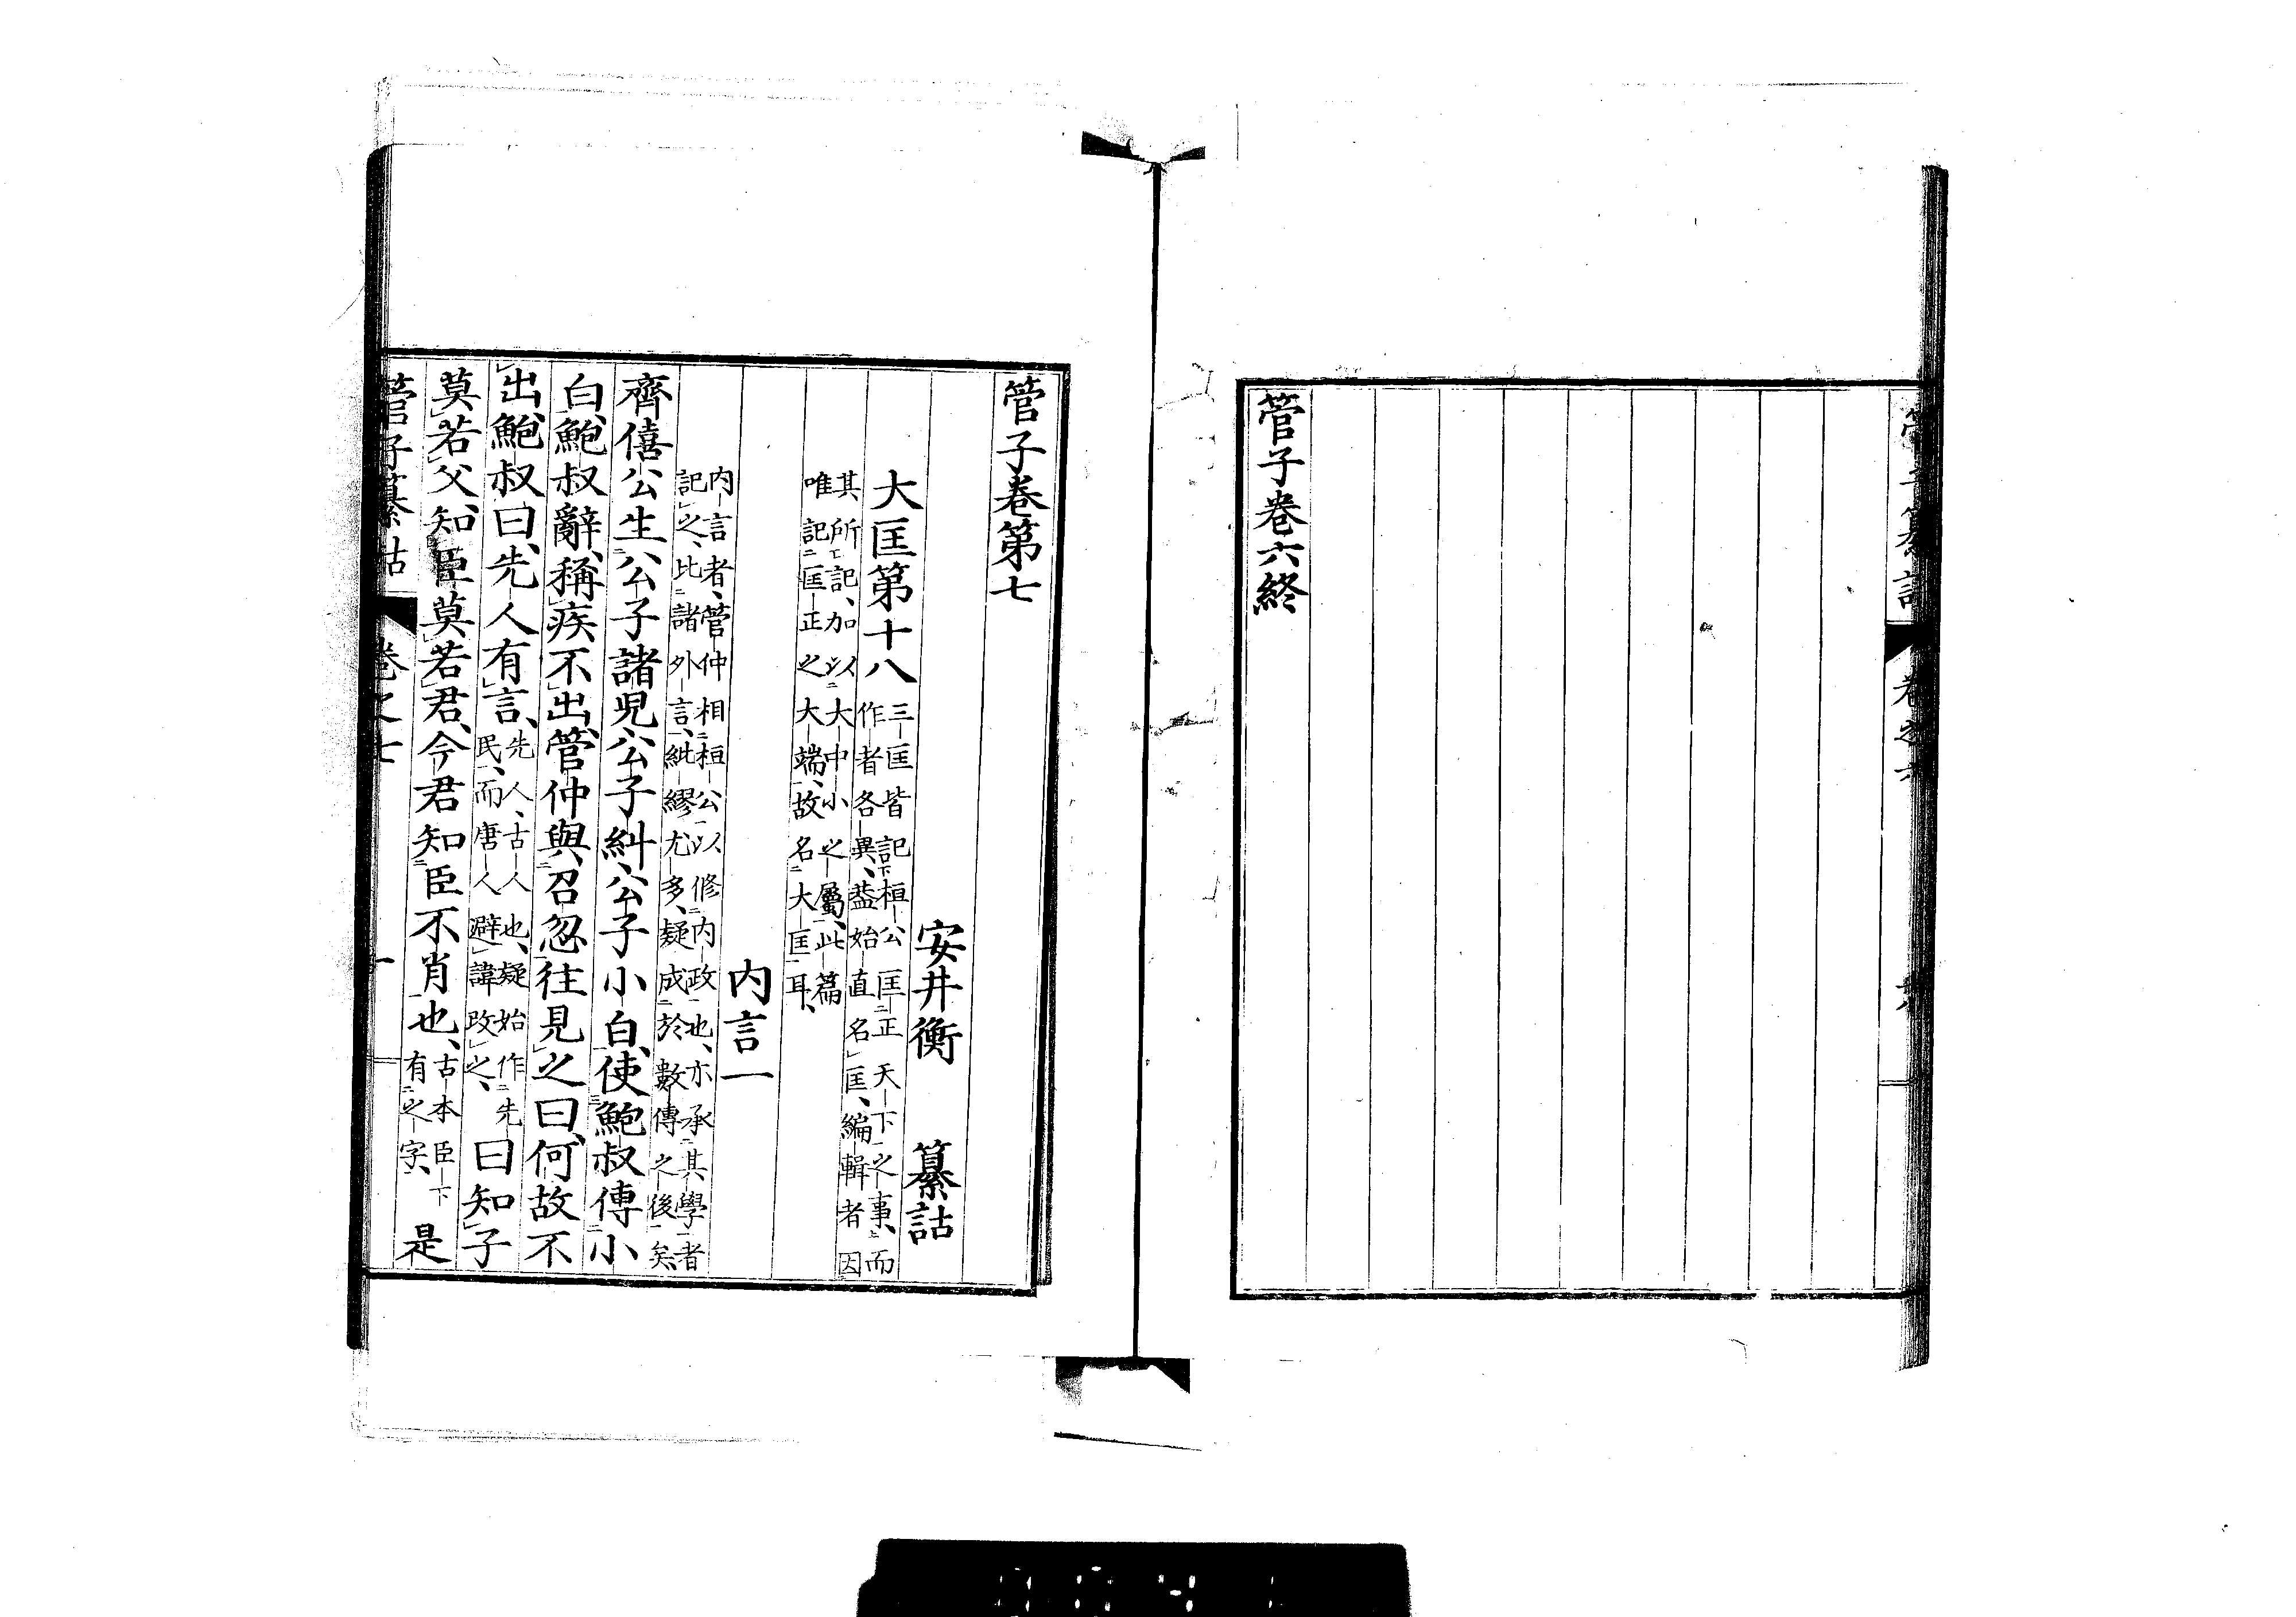 管子纂詁 卷之六
管子卷六終
管子卷第七
安井衡 纂詁
大匡第十八 三匡皆記桓公匡正天下之事、而
作者各異、蓋始直名匡、編輯者因
其所記、加以大中小之屬、此篇
唯記匡正之大端、故名大匡耳、
內言一
內言者、管仲相桓公以修內政也、亦承其學者
記之、此諸外言、紕繆尤多、疑成於數傳之後矣、
齊僖公生公子諸兒、公子糾、公子小白、使鮑叔傅小
白、鮑叔辭、稱疾不出、管仲與召忽往見之曰、何故不
出、鮑叔曰、先人有言、先人、古人也、疑始作先
民、而唐人避諱改之、曰知子
莫若父、知臣莫若君、今君知臣不肖也、古本臣下
有之字、是
管子纂詁 卷之七 一